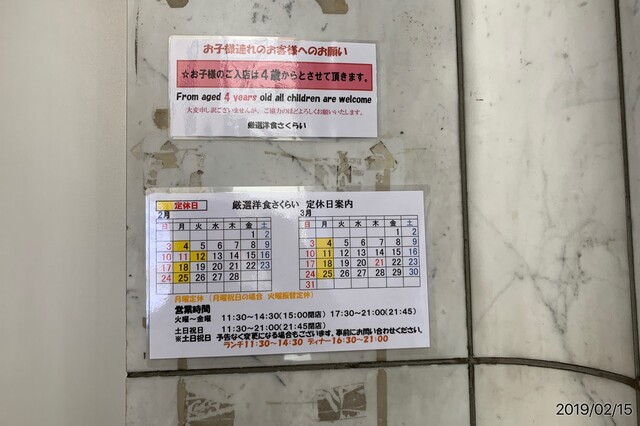 お子様連れのお客様へのお願い
☆お子様のご入店は4歳からとさせて頂きます。
From aged 4 years old all children are welcome
大変申し訳ございませんが、ご協力のほどよろしくお願いいたします。
厳選洋食さくらい
定休日 厳選洋食さくらい 定休日案内
2月
日 月 火 水 木 金 土
1 2
3 4 5 6 7 8 9
10 11 12 13 14 15 16
17 18 19 20 21 22 23
24 25 26 27 28
3月
日 月 火 水 木 金 土
1 2
3 4 5 6 7 8 9
10 11 12 13 14 15 16
17 18 19 20 21 22 23
24 25 26 27 28 29 30
31
月曜定休 (月曜祝日の場合 火曜振替定休)
営業時間
火曜～金曜 11:30～14:30(15:00閉店) 17:30～21:00(21:45)
土日祝日 11:30～21:00(21:45閉店)
※土日祝日 予告なく変更になる場合もございます。事前にお問い合わせください。
ランチ11:30～14:30 ディナー16:30～21:00
2019/02/15